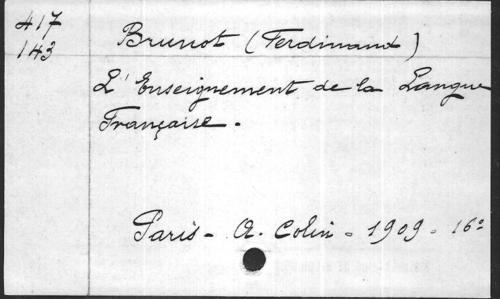 417
143
Brunot (Ferdinand)
L'Enseignement de la Langue
Française.
Paris - A. Colin - 1909 - 16º